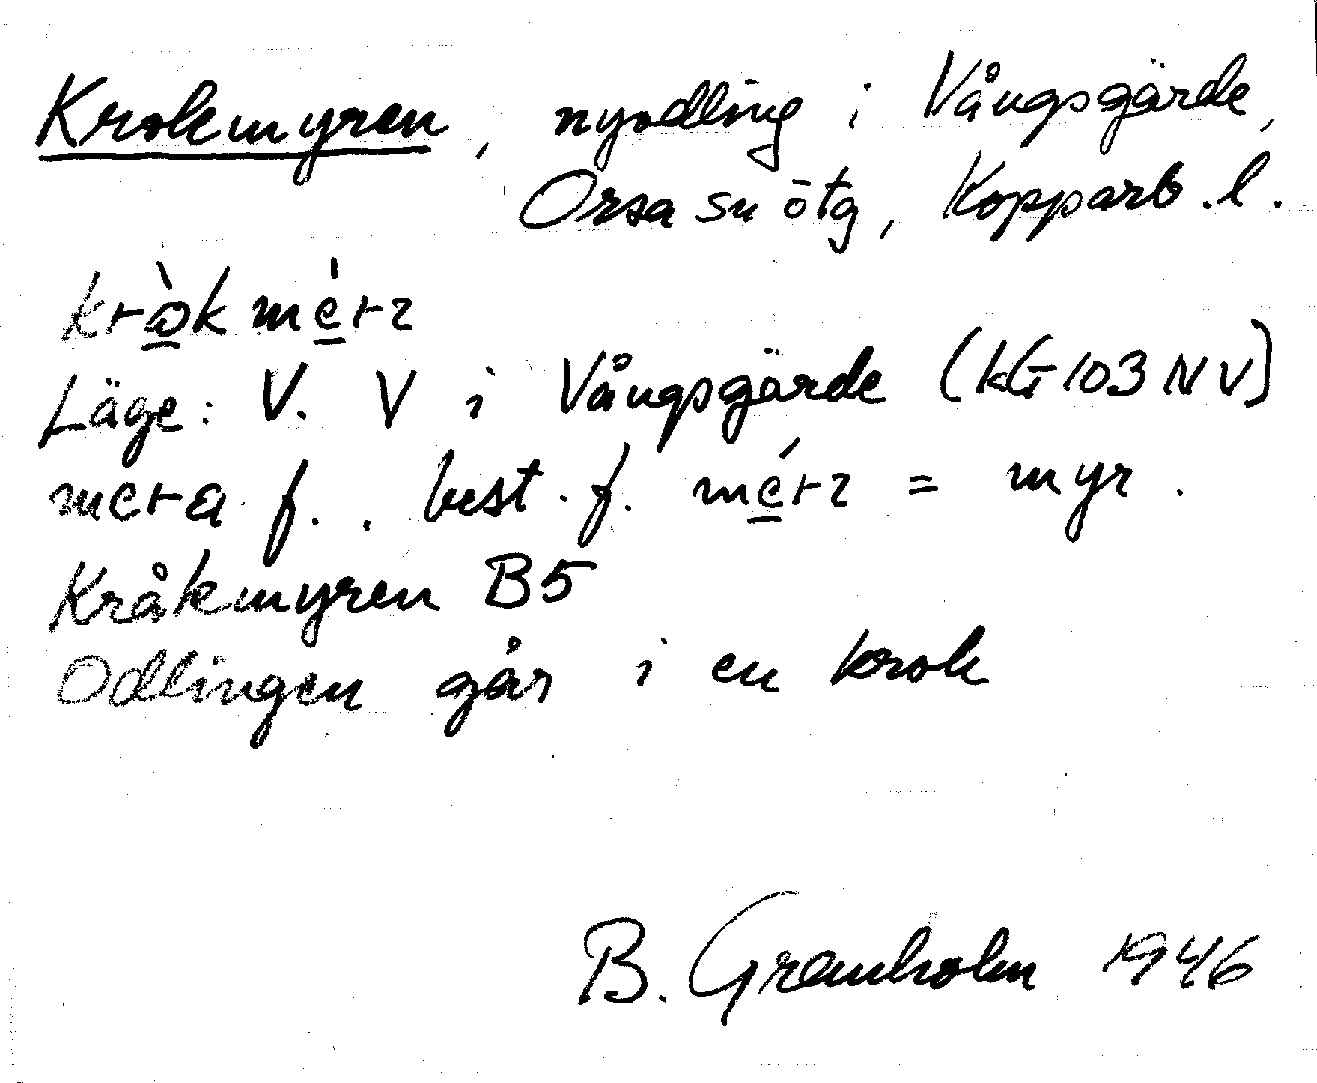 Krokmyren, nyodling i Vångsgärde,
Orsa sn ötg, Kopparb. l.
Läge: V. V i Vångsgärde (kG 103 NV)
mera f.. best. f. = myr.
Kråkmyren B5
Odlingen går i en krok
B. Granholm 1946